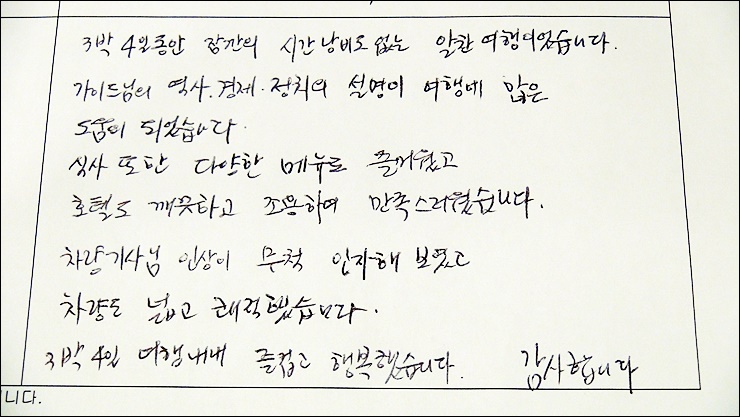 3박 4일동안 잠깐의 시간낭비도 없는 알찬 여행이었습니다.
가이드님의 역사.경제.정치의 설명이 여행에 많은
도움이 되었습니다.
식사 또한 다양한 메뉴로 즐거웠고
호텔도 깨끗하고 조용하며 만족스러웠습니다.
차량기사님 인상이 무척 인자해 보였고
차량도 넓고 쾌적했습니다.
3박 4일 여행내내 즐겁고 행복했습니다. 감사합니다
니다.